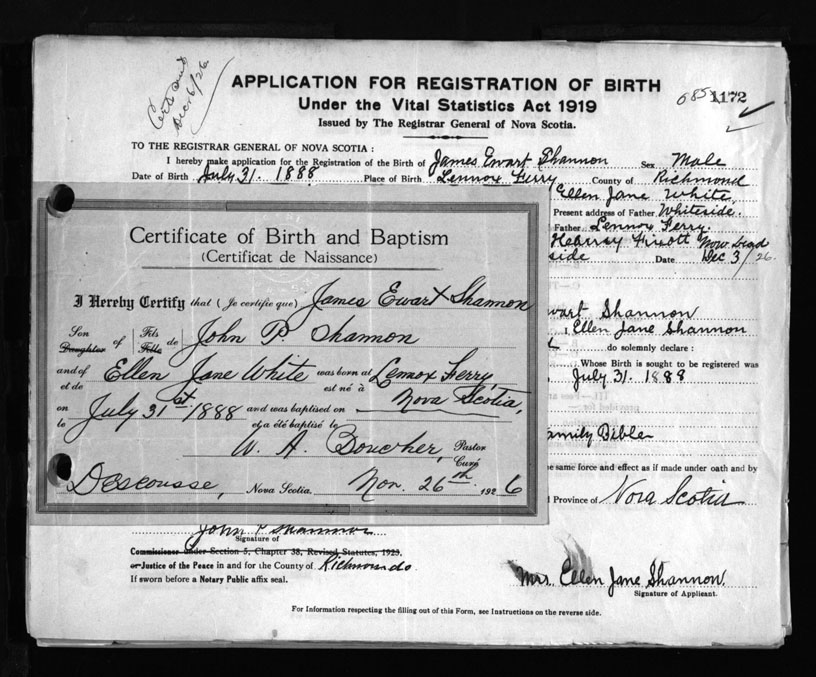 Dec 6/26
APPLICATION FOR REGISTRATION OF BIRTH
Under the Vital Statistics Act 1919
Issued by The Registrar General of Nova Scotia.
685
1172
TO THE REGISTRAR GENERAL OF NOVA SCOTIA :
I hereby make application for the Registration of the Birth of James Ewart Shannon Sex Male
Date of Birth July 31. 1888 Place of Birth Lennox Ferry County of Richmond
Ellen Jane White
Present address of Father Whiteside.
Father Lennox Ferry.
Now Dead
side Date Dec 3/26.
Certificate of Birth and Baptism
(Certificat de Naissance)
I Hereby Certify that (Je certifie que) James Ewart Shannon
Son Daughter of Fils Fille de John P. Shannon
and of et de Ellen Jane White was born at est né à Lennox Ferry,
Nova Scotia,
on le July 31st 1888 and was baptised on et a été baptisé le
W. A. Boucher, Pastor Curé
Descousse, Nova Scotia. Nov. 26th 1926
wart Shannon
, Ellen Jane Shannon
do solemnly declare :
Whose Birth is sought to be registered was
July 31. 1888
amily Bible
he same force and effect as if made under oath and by
Province of Nova Scotia
John P Shannon
Signature of
Commissioner under Section 5, Chapter 38, Revised Statutes, 1923.
or Justice of the Peace in and for the County of Richmond.
If sworn before a Notary Public affix seal.
Mrs. Ellen Jane Shannon.
Signature of Applicant.
For Information respecting the filling out of this Form, see Instructions on the reverse side.